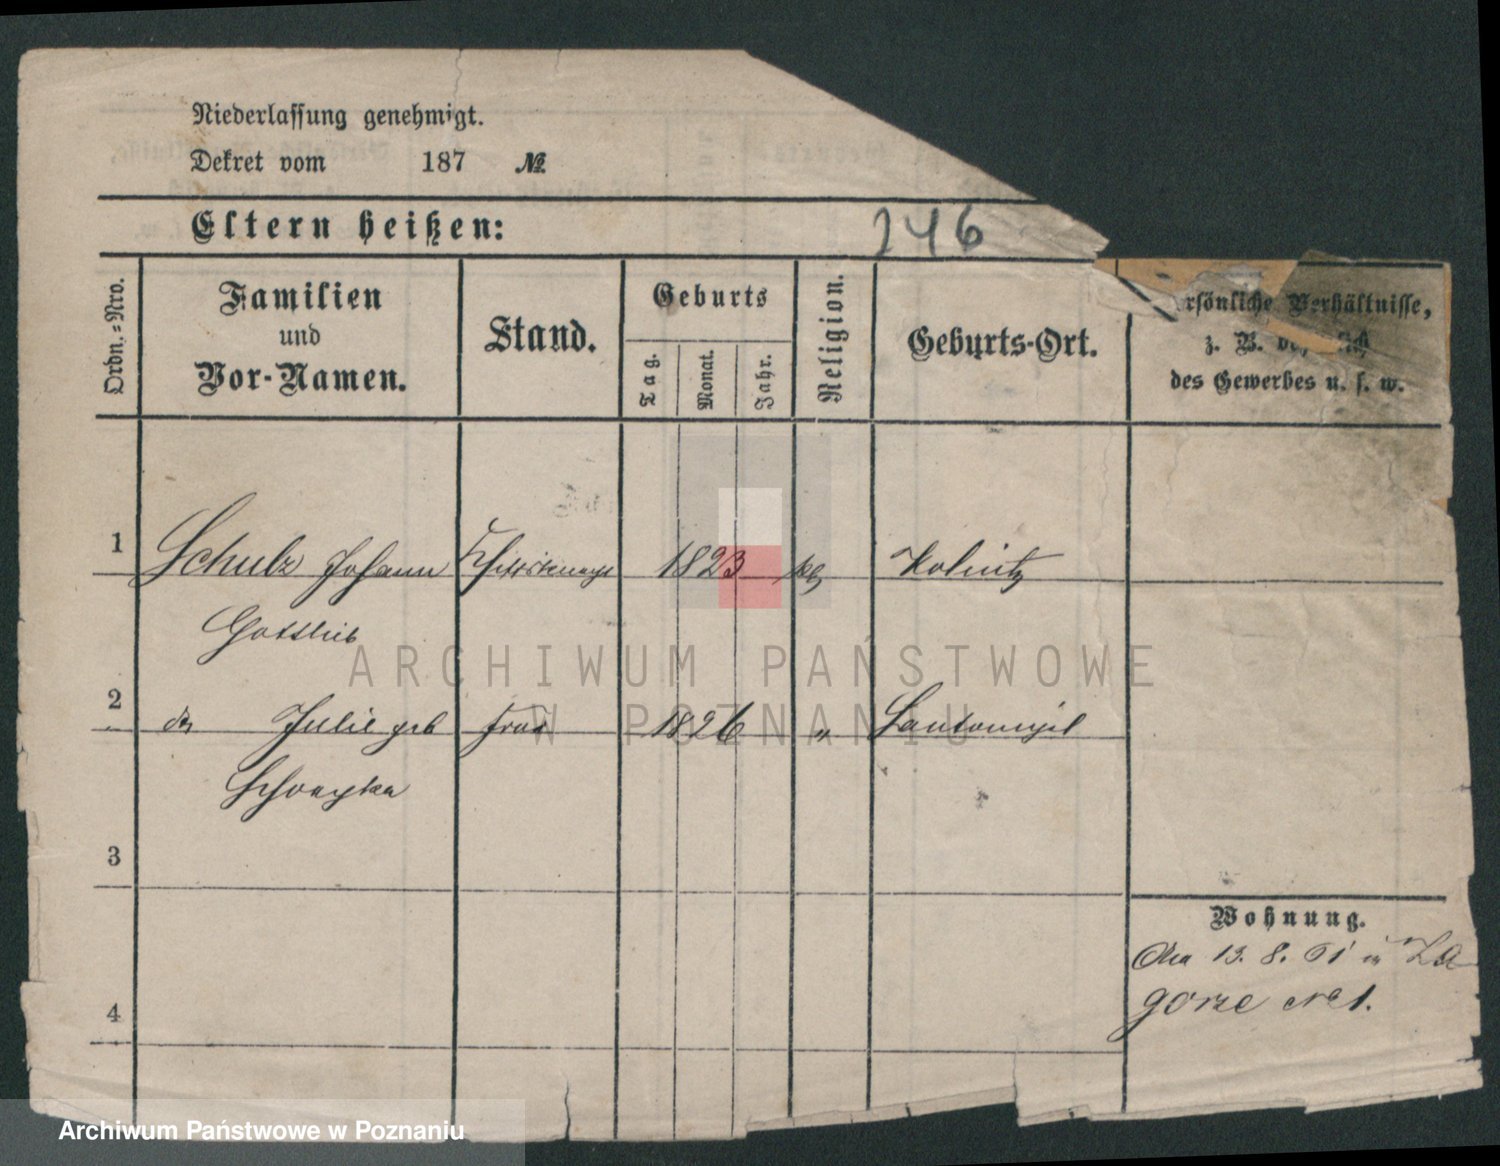 Niederlassung genehmigt.
Dekret vom 187 №
Eltern heißen:
246
Ordn.=Nro.
Familien
und
Vor-Namen.
Stand.
Geburts
Tag.
Monat.
Jahr.
Religion.
Geburts-Ort.
ersönliche Verhältnisse,
z. B.
des Gewerbes u. s. w.
1 Schulz Johann 1823 Kolnitz
Gottlieb
2 Julie geb Frau 1826 " Santomysl
3
Wohnung.
13. 8. 61 in Za
gorze No 1.
4
ARCHIWUM PAŃSTWOWE
W POZNANIU
Archiwum Państwowe w Poznaniu